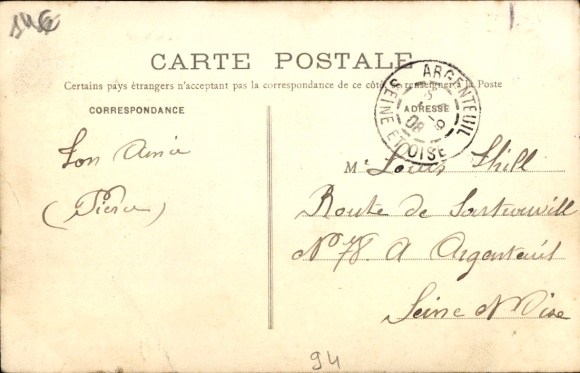 CARTE POSTALE
Certains pays étrangers n'acceptant pas la correspondance de ce côté, se renseigner à la Poste
CORRESPONDANCE
ADRESSE
ARGENTEUIL
SEINE ET OISE
08
Ton Amie
(Pierre)
M Louis
Route de
N° 78. A Argenteuil
Seine
94